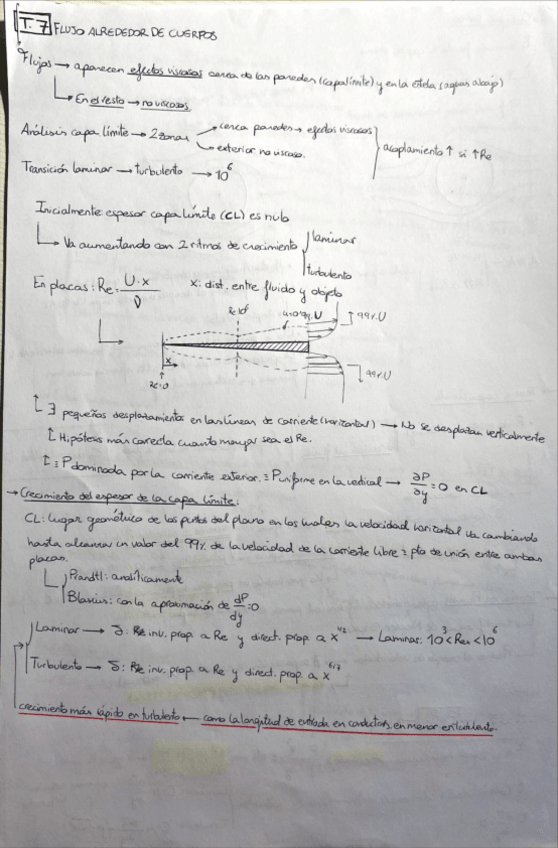 T. 7 FLUJO ALREDEDOR DE CUERPOS
Flujos → aparecen efectos viscosos cerca de las paredes (capa límite) y en la estela (aguas abajo)
↳ En el resto → no viscosos.
Análisis capa límite → 2 zonas
cerca paredes → efectos viscosos
exterior no viscoso.
acoplamiento ↑ si ↑ Re
Transición laminar → turbulento → 10^6
Inicialmente espesor capa límite (CL) es nulo
↳ Va aumentando con 2 ritmos de crecimiento
laminar
turbulento
En placas: Re = U·x / ν x: dist. entre fluido y objeto
u=0'99.U
99%.U
99%.U
x
x=0
∃ pequeños desplazamientos en las líneas de corriente (horizontal) → No se desplazan verticalmente
Hipótesis más correcta cuanto mayor sea el Re.
P dominada por la corriente exterior. = P uniforme en la vertical → ∂P/∂y = 0 en CL
→ Crecimiento del espesor de la capa límite:
CL: lugar geométrico de los puntos del plano en los cuales la velocidad horizontal va cambiando
hasta alcanzar un valor del 99% de la velocidad de la corriente libre = pto de unión entre ambas
placas.
Prandtl: analíticamente
Blasius: con la aproximación de dP/dy = 0
Laminar → δ: Re inv. prop. a Re y direct. prop. a x^1/2 → Laminar: 10^3 < Rex < 10^6
Turbulento → δ: Re inv. prop. a Re y direct. prop. a x^6/7
crecimiento más rápido en turbulento ← como la longitud de entrada en conductos, es menor en turbulento.